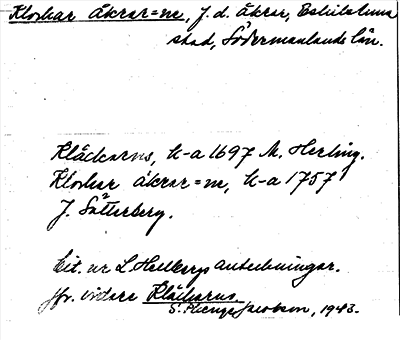 Klockar åkrar=ne, J. d. åkrar, Eskilstuna
stad, Södermanlands län.
Kläckarns, k-a 1697 M. Herling.
Klockar åkrar=ne, k-a 1757
J. Sätterberg.
Cit. ur L. Hellbergs anteckningar.
Jfr. vidare Kläckarns
S: Jacobson, 1943.